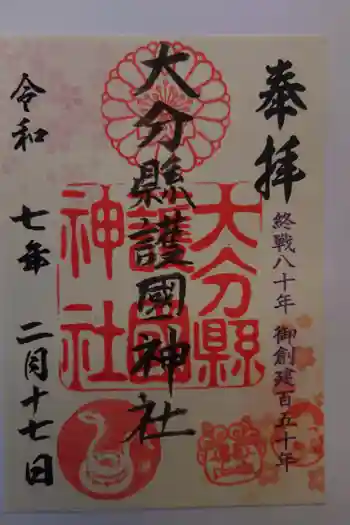 奉拝
終戦八十年 御創建百五十年
大分縣護國神社
大分縣
護國
神社
令和 七年 二月十七日